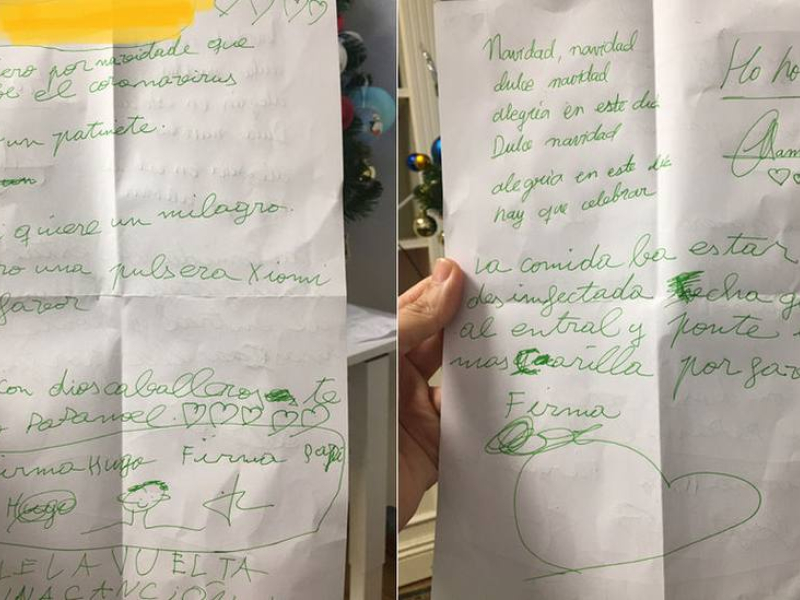 ero por navidade que
be el coronavirus
un patinete.
quiere un milagro.
ro una pulsera Xiomi
favor
con dios caballeros te
Papanoel.
irma Hugo Firma papa
Hugo
LE LA VUELTA
UNA CANCIÓN
Navidad, navidad
dulce navidad
alegria en este dia
Dulce navidad
alegria en este dia
hay que celebrar
La comida ba estar
desinfectada echa g
al entral y ponte
mascarilla por favo
Firma
Ho ho